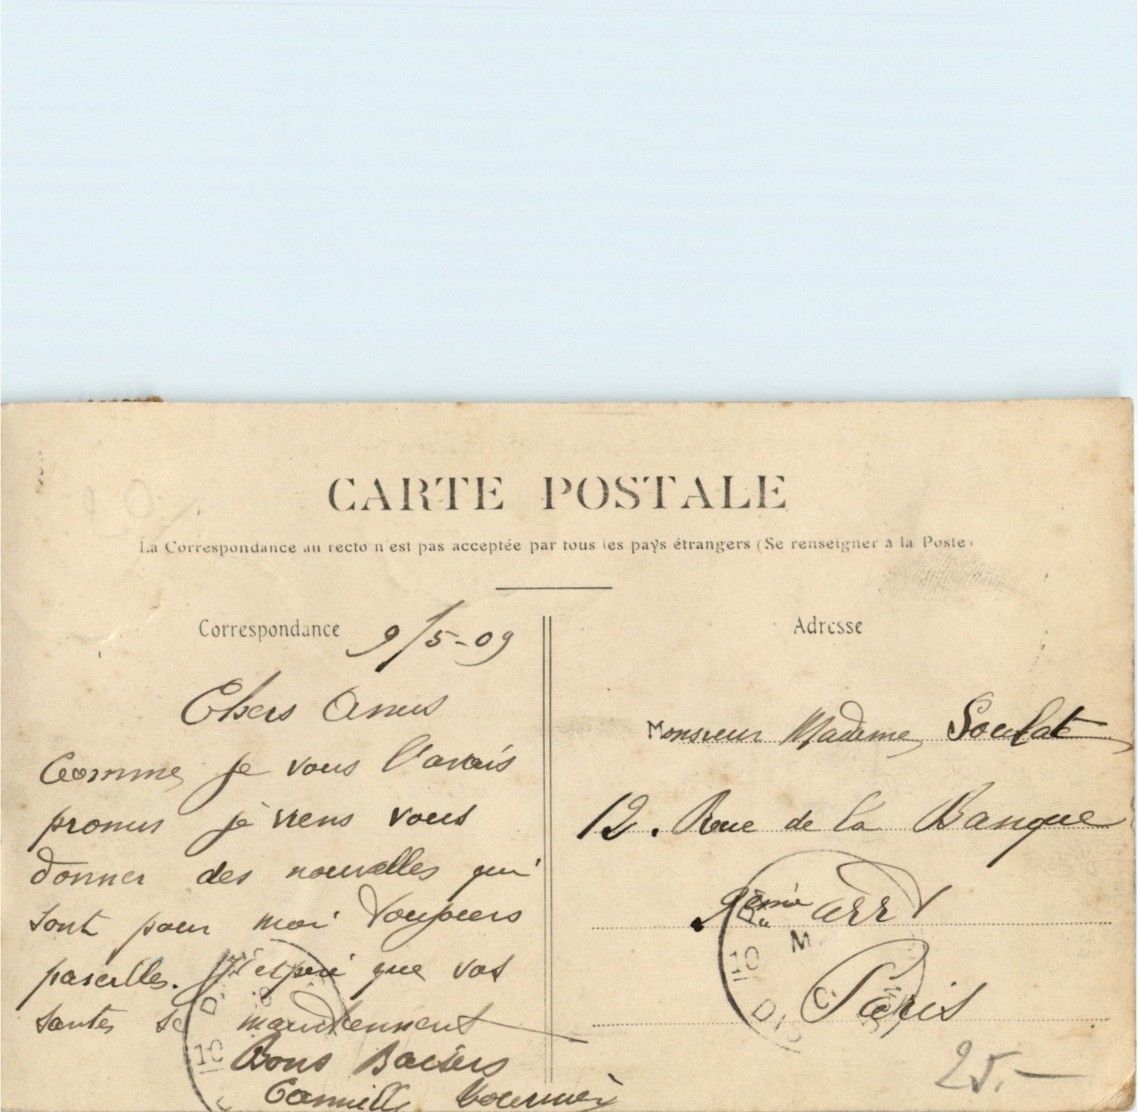 CARTE POSTALE
La Correspondance au recto n'est pas acceptée par tous les pays étrangers (Se renseigner à la Poste)
Correspondance
9/5-09
Adresse
Chers Amis
Comme je vous l'avais
promis je viens vous
donner des nouvelles qui
sont pour moi toujours
pareilles. J'espère que vos
santés se maintiennent
Bons Baisers
Camille
Monsieur Madame Soulat
12. Rue de la Banque
2ème Arrt
Paris
25.-